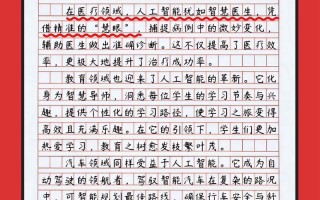 在医疗领域，人工智能犹如智慧医生，凭
借精准的“慧眼”，捕捉病例中的微妙变化，
辅助医生做出准确诊断。这不仅提高了医疗效
率，更极大地提升了治疗成功率。
教育领域也迎来了人工智能的革新。它化
身为智慧导师，洞悉每位学生的学习节奏与兴
趣，提供个性化的学习路径，使学习之旅变得
高效且充满乐趣。在它的引领下，学生们更加
热爱学习，教育之树愈发枝繁叶茂。
汽车领域同样受益于人工智能。它成为自
动驾驶的领航者，驾驭智能汽车在复杂的路况
中，可智能规划最佳路线，确保行车安全与舒